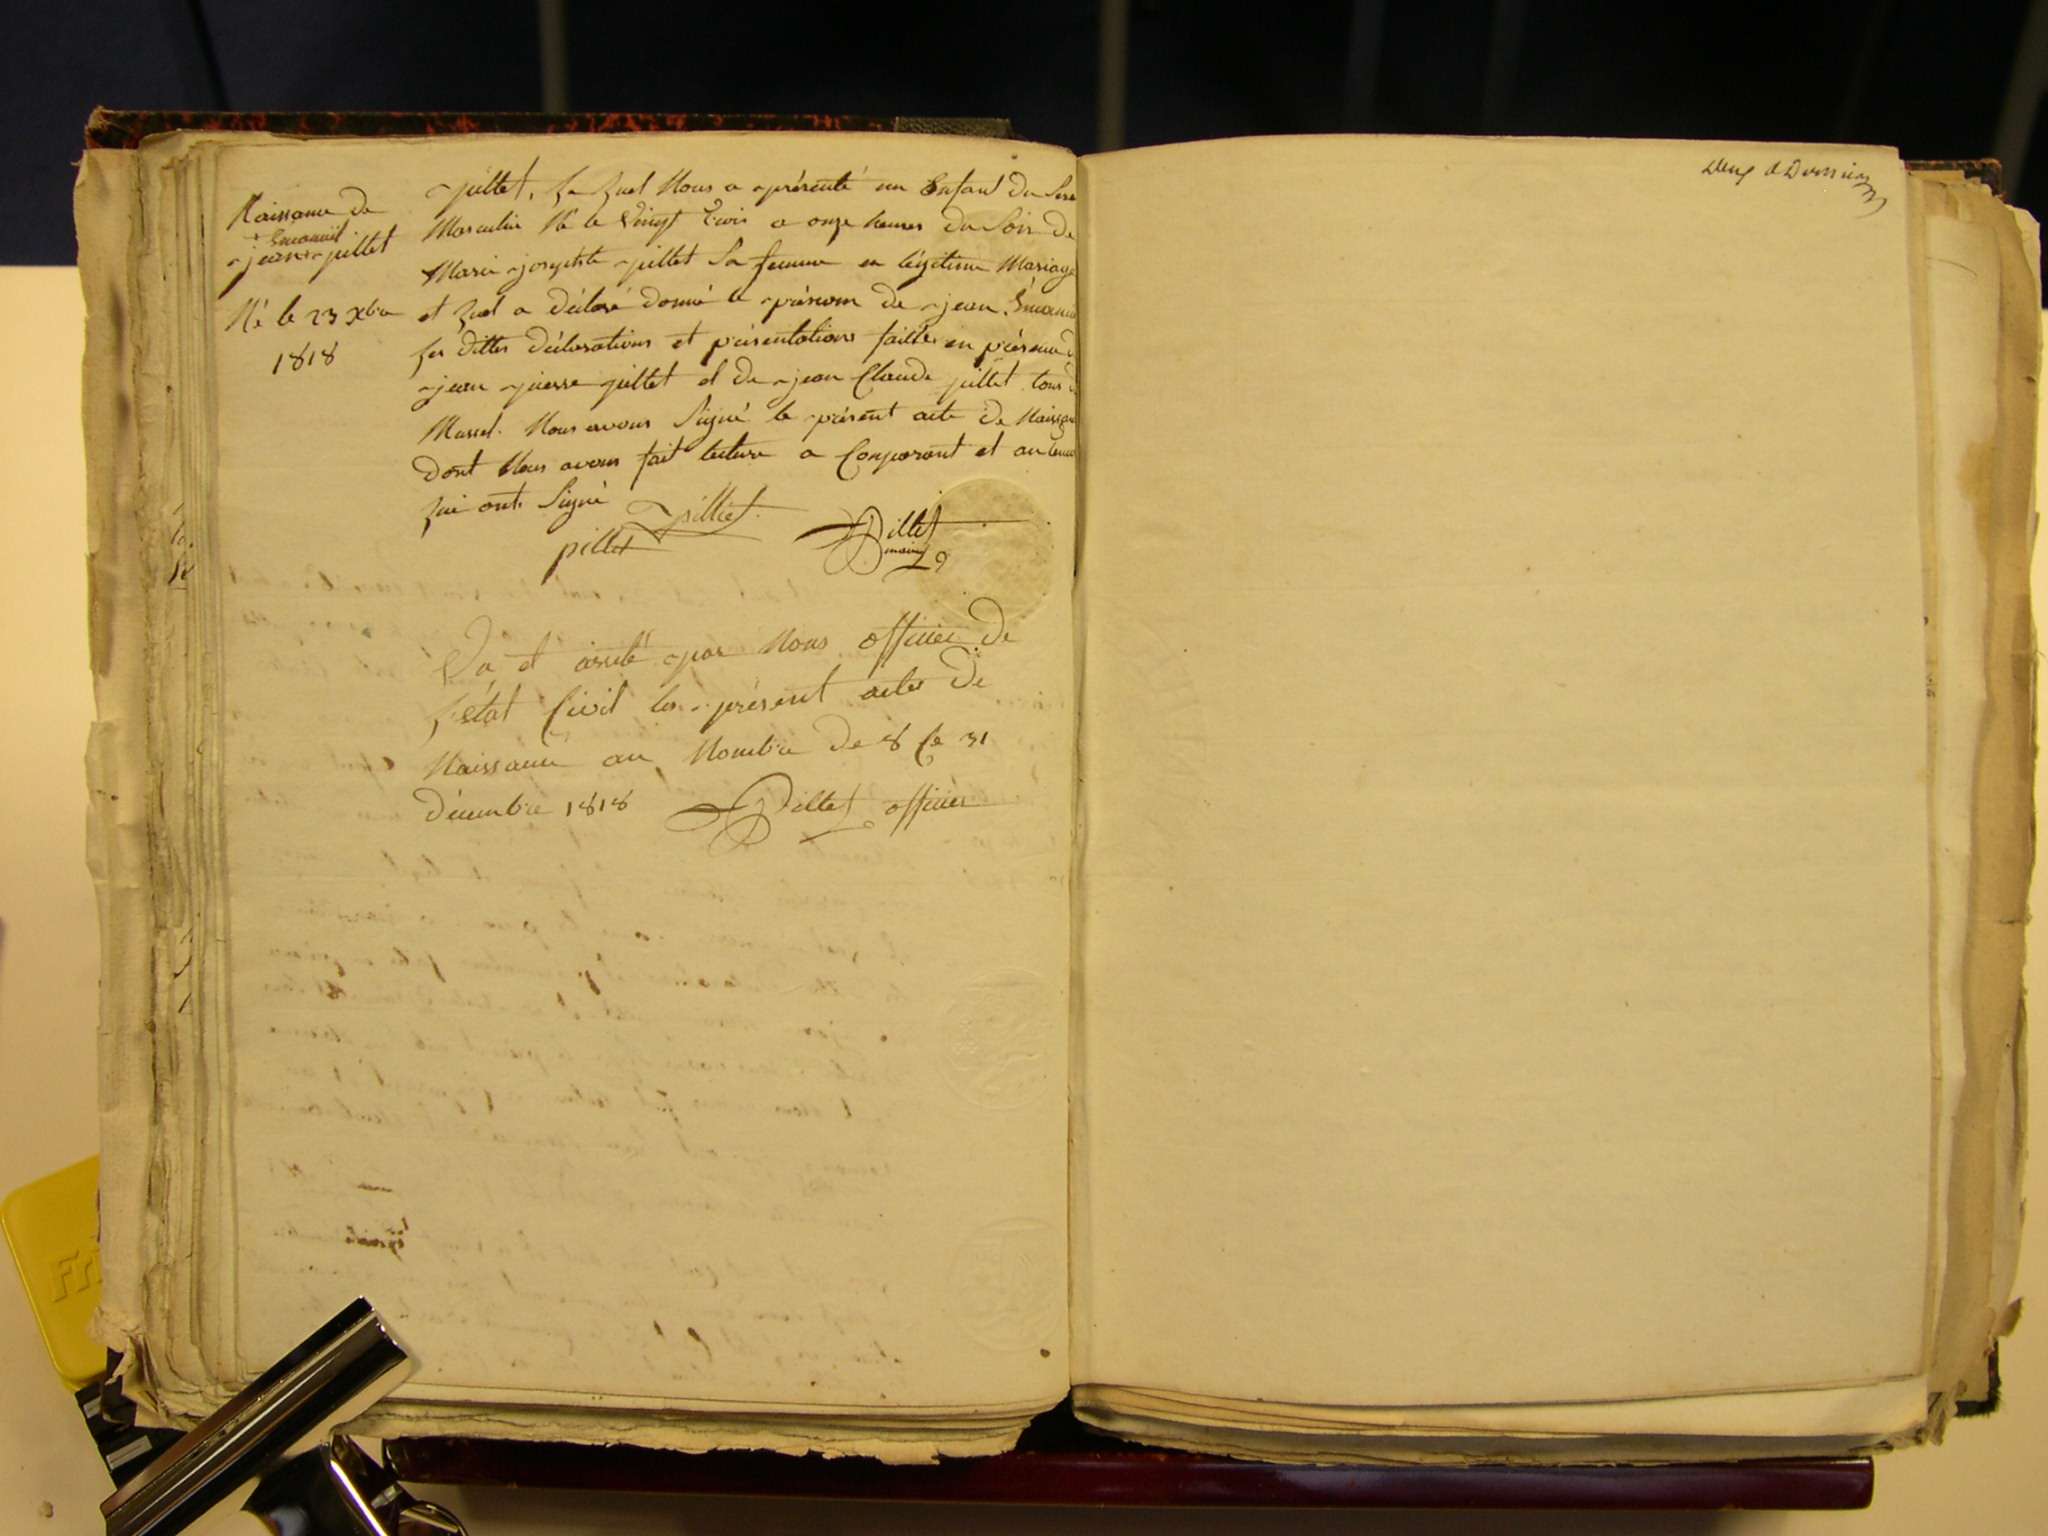 Naissance de
Emanuël
jean pillet
Né le 23 Xbre
1818
pillet, Le quel Nous a présenté un Enfant du Sexe
Masculin Né le Vingt Trois a onze heures du Soir de
Marie josephte pillet Sa femme en légitime Mariage
et quel a déclaré donné le prénom de jean Emanuel
Les dittes déclarations et présentations faittes en présence de
jean pierre pillet et de jean Claude pillet tous de
Mussel. Nous avons Signé le présent acte de Naissance
dont Nous avons fait lecture a Comparant et au temoins
qui ont Signé
pilliet
pillet
Pillet
maire
Vu et arrêté par Nous officier de
L'état Civil les présent actes de
Naissance au Nombre de 8 Ce 31
décembre 1818 Pillet officier